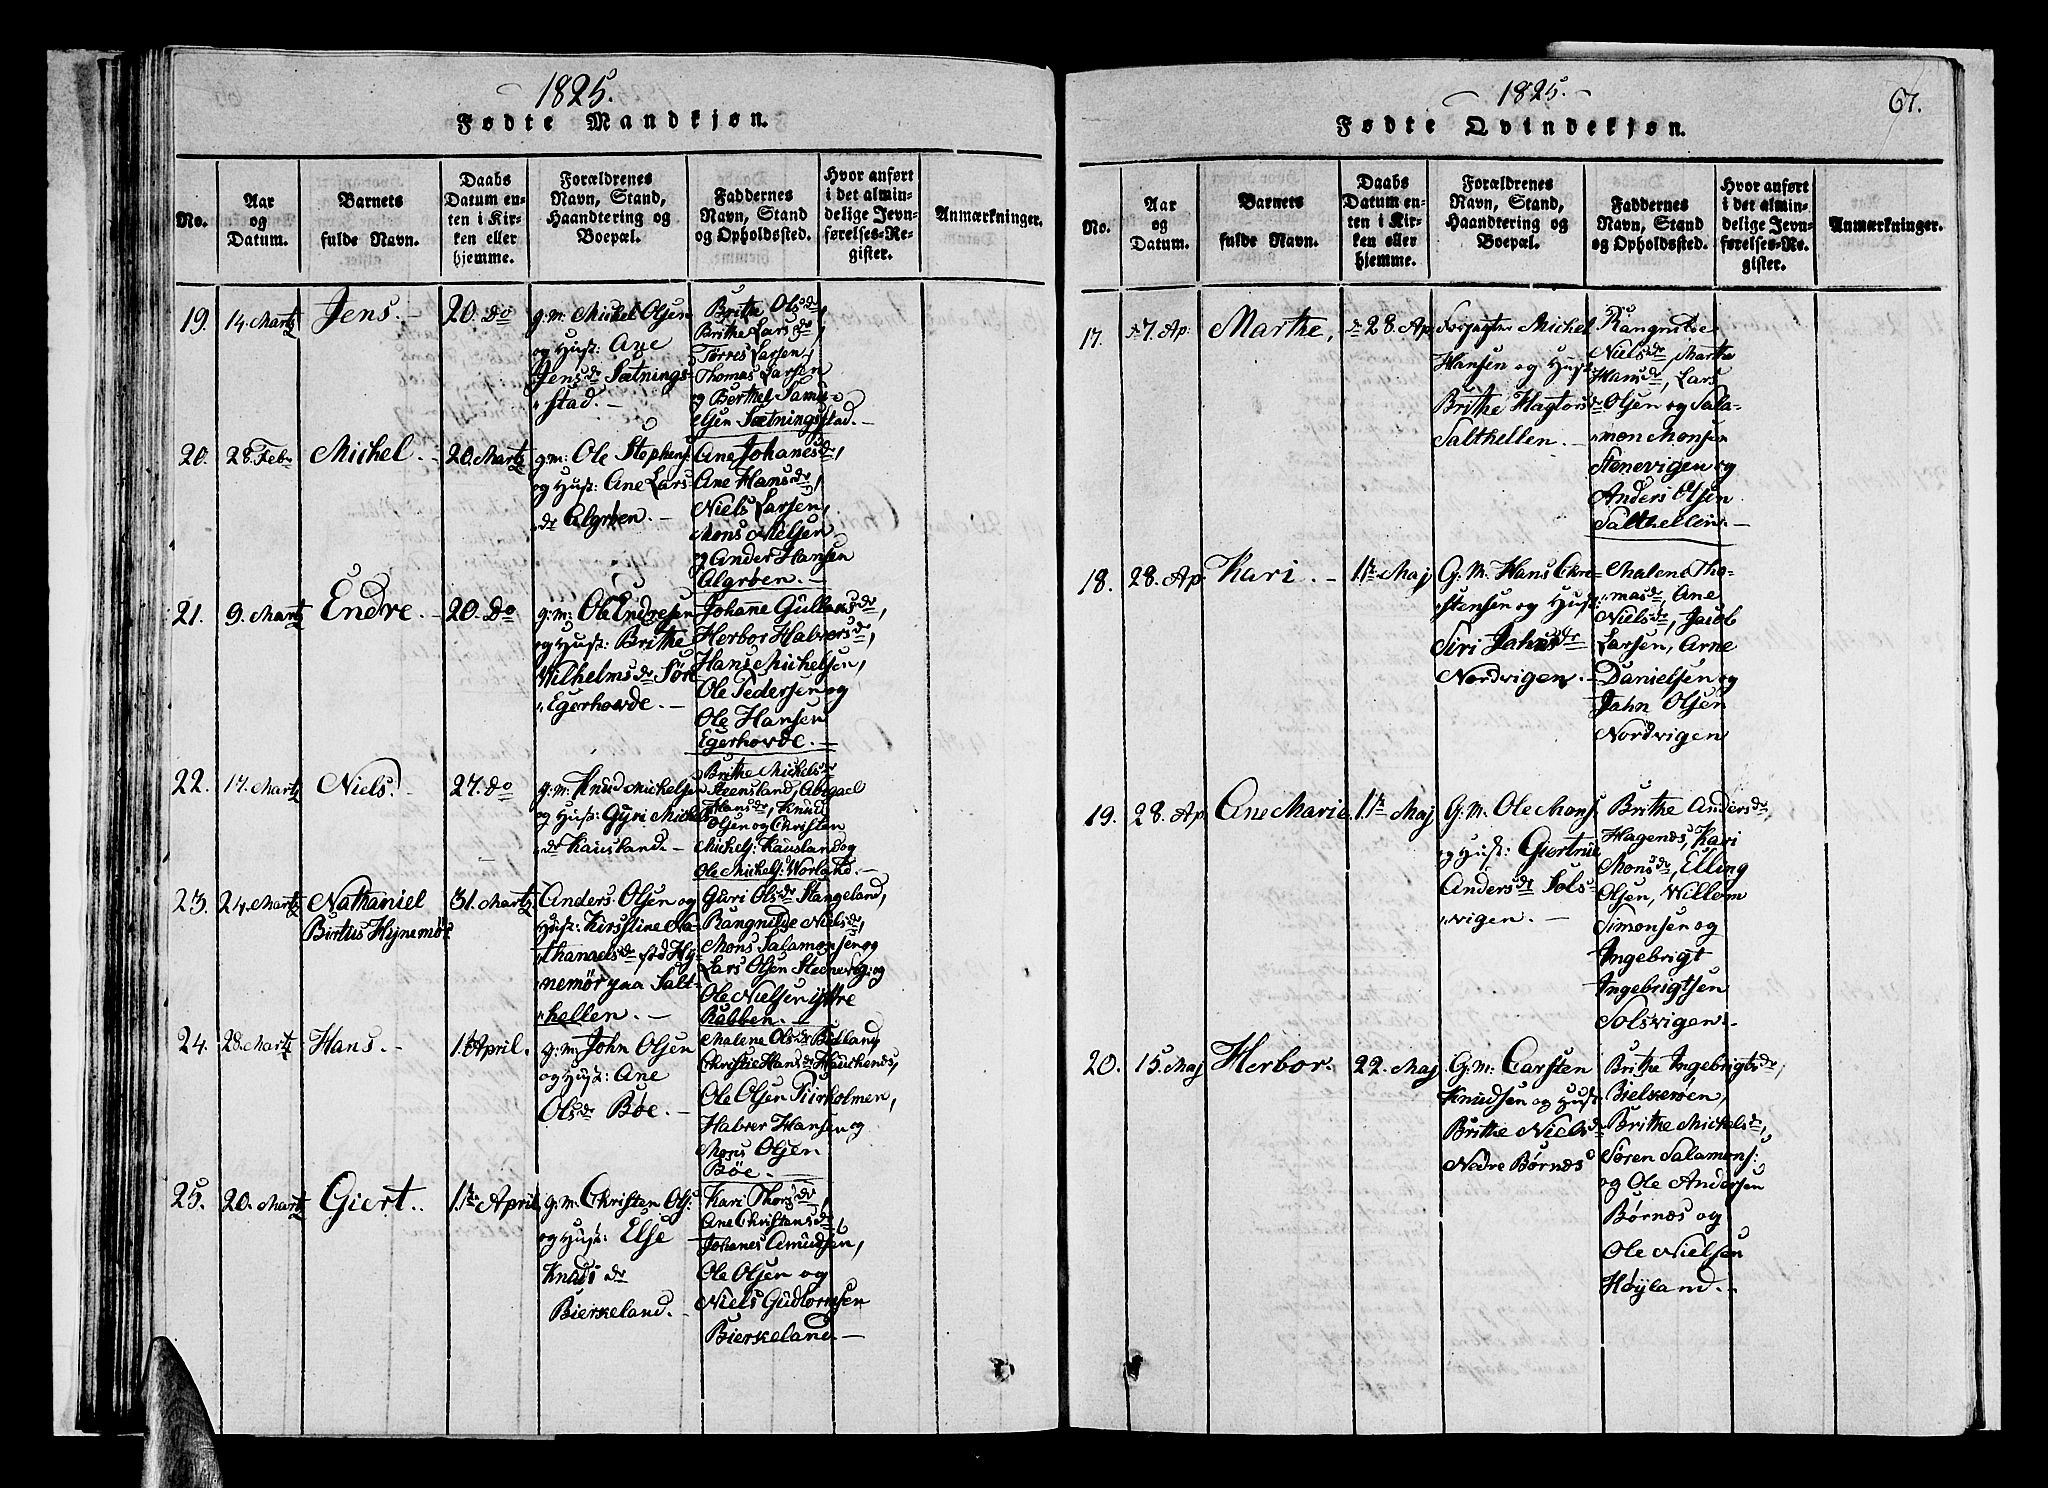 1825.
Fødte Mandkjøn.
No.
Aar
og
Datum.
Barnets
fulde Navn.
Daabs
Datum en-
ten i Kir-
ken eller
hjemme.
Forældrenes
Navn, Stand,
Haandtering og
Boepæl.
Faddernes
Navn, Stand
og Opholdssted.
Hvor anført
i det almin-
delige Jevn-
førelses-Re-
gister.
Anmærkninger.
19. 14. Martz
Jens.
20. do
g.m: Michel Olsen
og Hust: Ane
Jensdr Sætnings-
stad.
Brithe Olsdr
Brithe Larsdr
Tørres Larsen,
Thomas Larsen
og Berthel Samu-
elsen Sætningstad.
20. 28. Febr
Michel
20. Martz
g.m: Ole Stephens:
og Hust: Ane Lars-
dr Algrøen.
Ane Johanesdr,
Ane Hansdr,
Niels Larsen,
Mons Nielsen
og Ander Hansen
Algrøen.
21. 9. Martz
Endre.
20. Do
g.m: Ole Endresen
og Hust: Brithe
Wilhelmsdr Søre
Egerhovde.
Johane Gullaksdr,
Herbor Halvorsdr,
Hans Michelsen,
Ole Pedersen og
Ole Hansen
Egerhovde.
22. 17. Martz
Niels.
27. Do
g.m: Knud Michelsen
og Hust: Gyri Michels
dr Kausland.
Brithe Michelsdr
Steensland, Abigael
Hansdr, Knud
Olsen og Christen
Michels: Kausland og
Ole Michels: Worland.
23. 24. Martz
Nathaniel
Birtus Hynemør
31. Martz
Anders Olsen og
Hust: Kirstine Na-
thanaelsdr fød Hy-
nemør paa Salt-
hellen.
Guri Olsdr Stangeland,
Rangnilde Nielsdr,
Mons Salamonsen og
Lars Olsen Steenevig og
Ole Nielsen ystre
Rabben.
24. 28. Martz
Hans.
1te April.
g.m: John Olsen
og Hust: Ane
Olsdr Bøe.
Malene Olsdr
Christie Hansdr Haukenes,
Ole Olsen Turholmen,
Halver Hansen og
Mons Olsen
Bøe.
25. 20. Martz
Giert.
1te April
g.m: Christen Ols:
og Hust: Else
Knudsdr
Bierkeland.
Kari Thorsdr
Ane Christensdr,
Johanes Amundsen,
Ole Olsen og
Niels Gudtormsen
Bierkeland.
1825.
67.
Fødte Qvindekjøn.
No.
Aar
og
Datum.
Barnets
fulde Navn.
Daabs
Datum en-
ten i Kir-
ken eller
hjemme.
Forældrenes
Navn, Stand,
Haandtering og
Boepæl.
Faddernes
Navn, Stand
og Opholdssted.
Hvor anført
i det almin-
delige Jevn-
førelses-Re-
gister.
Anmærkninger.
17. 7. Ap:
Marthe,
28. Ap
Michel
Hansen og Hust:
Brithe Hagtorsdr
Salthellen.
Rangnilde
Nielsdr, Marthe
Hansdr, Lars
Olsen og Sala-
mon Monsen
Stenevigen og
Anders Olsen
Salthellen.
18. 28. Ap
Kari.
1te Maj
G.M. Hans Chre-
stensen og Hust:
Siri Jahnsdr
Nordvigen.
Malene Tho-
masdr, Ane
Nielsdr, Jacob
Larsen, Arne
Danielsen og
Jahn Olsen
Nordvigen
19. 28. Ap
Ane Marie
1te Maj
G.M. Ole Mons:
og Hust: Giertrud
Andersdr Sols-
vigen.
Brithe Andersdr,
Hagenæs, Kari
Monsdr, Elling
Olsen, Willem
Simonsen og
Ingebrigt
Ingebrigtsen
Solsvigen.
20. 15. Maj
Herbor.
22. Maj
G.M: Carsten
Knudsen og Hust:
Brithe Nielsdr
Nedre Børnæs
Brithe Ingebrigtsdr,
Bielkerøen,
Brithe Michelsdr,
Søren Salamons:
og Ole Andersen
Børnæs og
Ole Nielsen
Høyland.